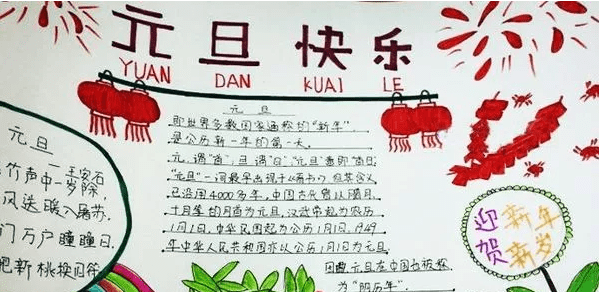 元旦快乐
YUAN DAN KUAI LE
元旦
即世界多数国家通称的“新年”,
是公历新一年的第一天。
元,谓“首”,旦,谓“日”,“元旦”意即“首日”.
“元旦”一词最早出现于《晋书》,但其含义
已沿用4000多年,中国古代曾以腊月、
十月等的月首为元旦,汉武帝起为农历
1月1日,中华民国起为公历1月1日,1949
年中华人民共和国亦以公历1月1日为元旦,
因此元旦在中国也被称
为“阳历年”.
元旦
王安石
竹声中一岁除,
风送暖入屠苏.
门万户瞳瞳日,
把新桃换旧符
迎新年
贺新岁